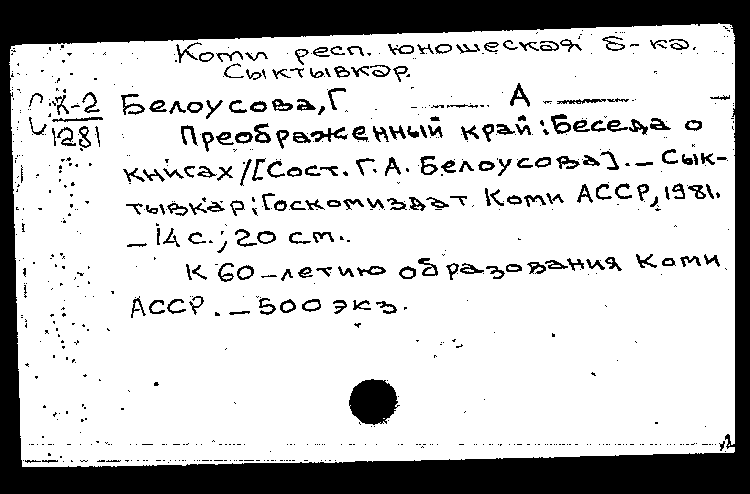 Коми респ. юношеская б-ка.
Сыктывкар
К-2 Белоусова, Г А
1281
Преображенный край: Беседа о
книгах/[Сост. Г. А. Белоусова]. – Сык-
тывкар: Госкомиздат Коми АССР, 1981.
– 14 с.; 20 см..
К 60-летию образования Коми
АССР. – 500 экз.